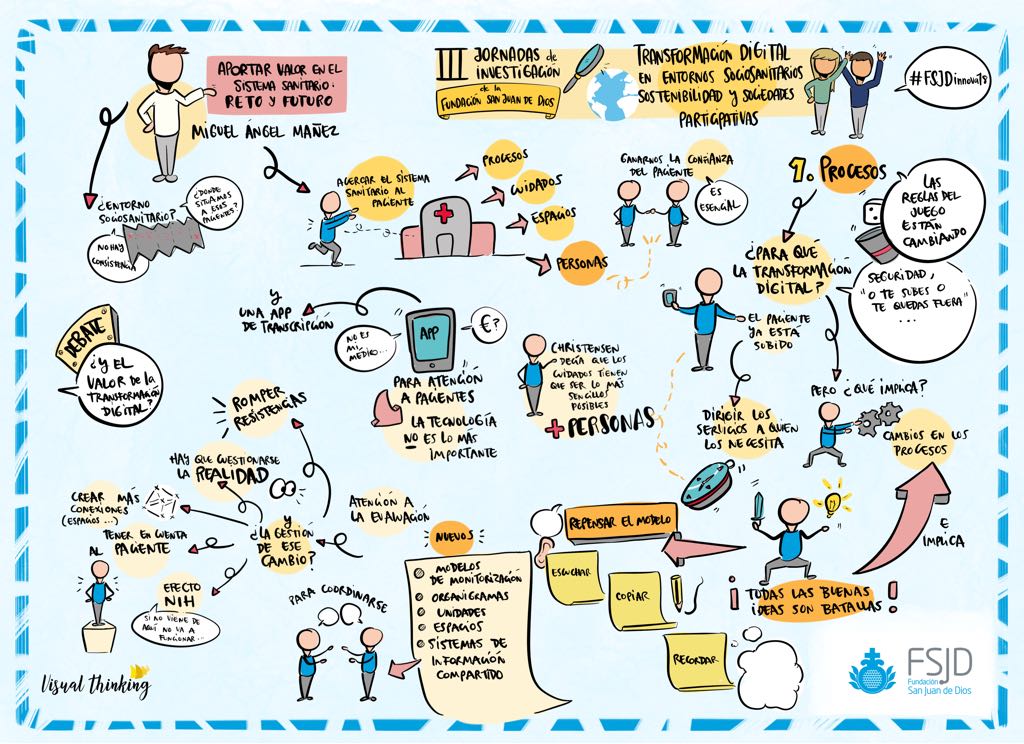 APORTAR VALOR EN EL
SISTEMA SANITARIO:
RETO Y FUTURO
MIGUEL ÁNGEL MAÑEZ
III JORNADAS de
INVESTIGACIÓN
de la
FUNDACIÓN SAN JUAN DE DIOS
TRANSFORMACIÓN DIGITAL
EN ENTORNOS SOCIOSANITARIOS
SOSTENIBILIDAD Y SOCIEDADES
PARTICIPATIVAS
#FSJDinnova18
¿ENTORNO
SOCIOSANITARIO?
¿DONDE
SITUAMOS
A ESOS
PACIENTES?
NO HAY
CONSISTENCIA
ACERCAR EL SISTEMA
SANITARIO AL
PACIENTE
PROCESOS
CUIDADOS
ESPACIOS
PERSONAS
GANARNOS LA CONFIANZA
DEL PACIENTE
ES
ESENCIAL
1. PROCESOS
LAS
REGLAS DEL
JUEGO
ESTÁN
CAMBIANDO
¿PARA QUÉ
LA TRANSFORMACIÓN
DIGITAL?
SEGURIDAD,
"O TE SUBES O
TE QUEDAS FUERA"
...
EL PACIENTE
YA ESTÁ
SUBIDO
Y
UNA APP
DE TRANSCRIPCIÓN
NO ES
MI
MÉDICO...
APP
€?
PARA ATENCIÓN
A PACIENTES
LA TECNOLOGÍA
NO ES LO MÁS
IMPORTANTE
CHRISTENSEN
DECÍA QUE LOS
CUIDADOS TIENEN
QUE SER LO MÁS
SENCILLOS
POSIBLES
+ PERSONAS
DIRIGIR LOS
SERVICIOS A QUIEN
LOS NECESITA
PERO ¿QUÉ IMPLICA?
CAMBIOS EN LOS
PROCESOS
E
IMPLICA
DEBATE
¿Y EL
VALOR DE LA
TRANSFORMACIÓN
DIGITAL?
ROMPER
RESISTENCIAS
HAY QUE CUESTIONARSE
LA REALIDAD
CREAR MÁS
CONEXIONES
(ESPACIOS ...)
TENER EN CUENTA
AL PACIENTE
EFECTO
NIH
SI NO VIENE DE
AQUÍ NO VA A
FUNCIONAR...
Y
¿LA GESTIÓN
DE ESE
CAMBIO?
ATENCIÓN A
LA EVALUACIÓN
NUEVOS
MODELOS
DE MONITORIZACIÓN
ORGANIGRAMAS
UNIDADES
ESPACIOS
SISTEMAS DE
INFORMACIÓN
COMPARTIDO
PARA COORDINARSE
REPENSAR EL MODELO
ESCUCHAR
COPIAR
RECORDAR
¡TODAS LAS BUENAS
IDEAS SON BATALLAS!
Visual Thinking
FSJD
Fundación
San Juan de Dios